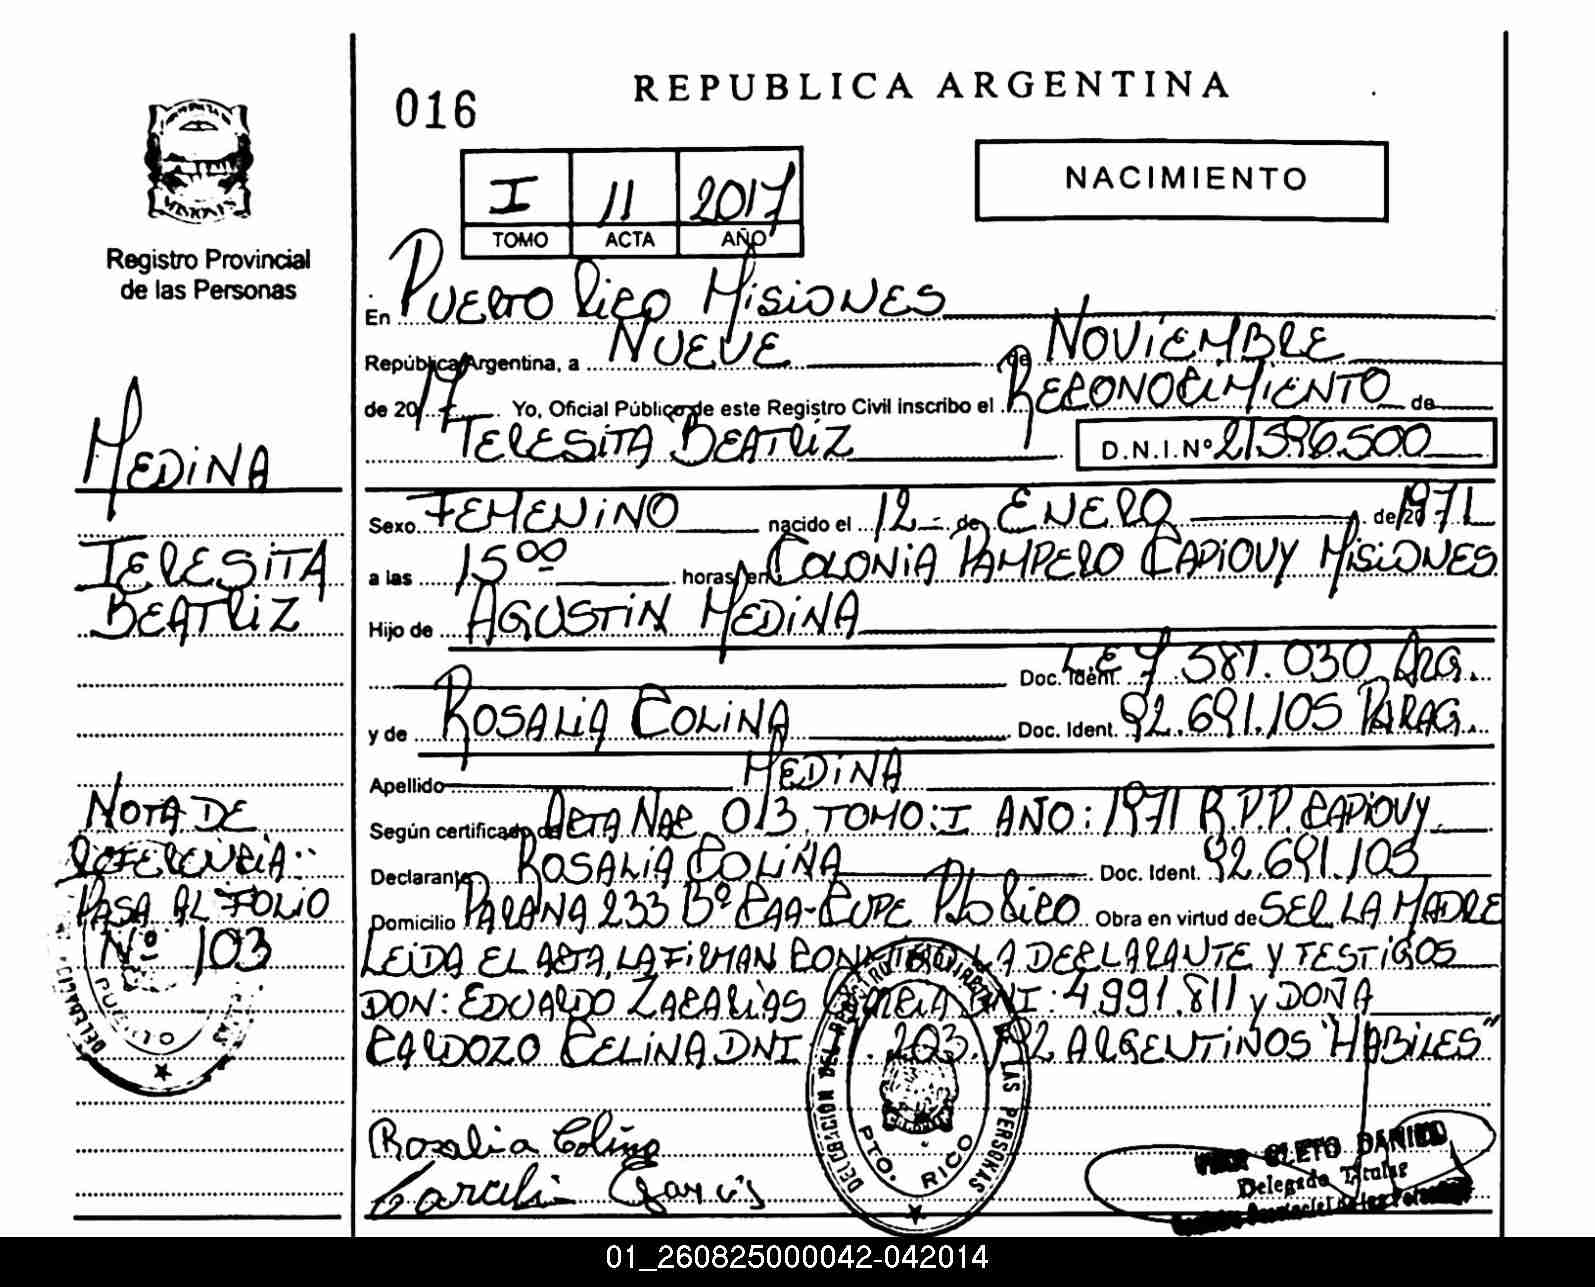 016
REPUBLICA ARGENTINA
NACIMIENTO
I 11 2017
TOMO ACTA AÑO
Registro Provincial
de las Personas
En Puerto Rico Misiones
República Argentina, a Nueve de Noviembre
de 2017 Yo, Oficial Público de este Registro Civil inscribo el Reconocimiento de
Teresita Beatriz D.N.I.Nº 21.596.500
Sexo Femenino nacido el 12 de Enero de 1971
a las 15 00 horas, en Colonia Pampero Capiovy Misiones
Hijo de Agustin Medina
Doc. Ident. L.E 7 581.030 Arg.
y de Rosalia Colina Doc. Ident. 92.691.105 Parag.
Apellido Medina
Según certificado de Acta Nac. 013 Tomo: I Año: 1971 R.P.P. Capiovy
Declarante Rosalia Coliña Doc. Ident. 92.691.105
Domicilio Parana 233 Bº Caa-Cupe Pto Rico Obra en virtud de ser la madre
Leida el acta, la firman conmigo la declarante y testigos
Don: Eduardo Zacarias DNI: 4.991.811 y Doña
Cardozo Celina DNI 203. Argentinos "Habiles"
Rosalia Coliña
Garcia
DELEGACION DEL REGISTRO PROVINCIAL DE LAS PERSONAS
PTO. RICO
CLETO DANIEL
Delegado Titular
Medina
Teresita
Beatriz
Nota de
Referencia:
Pasa al folio
Nº 103
01_260825000042-042014